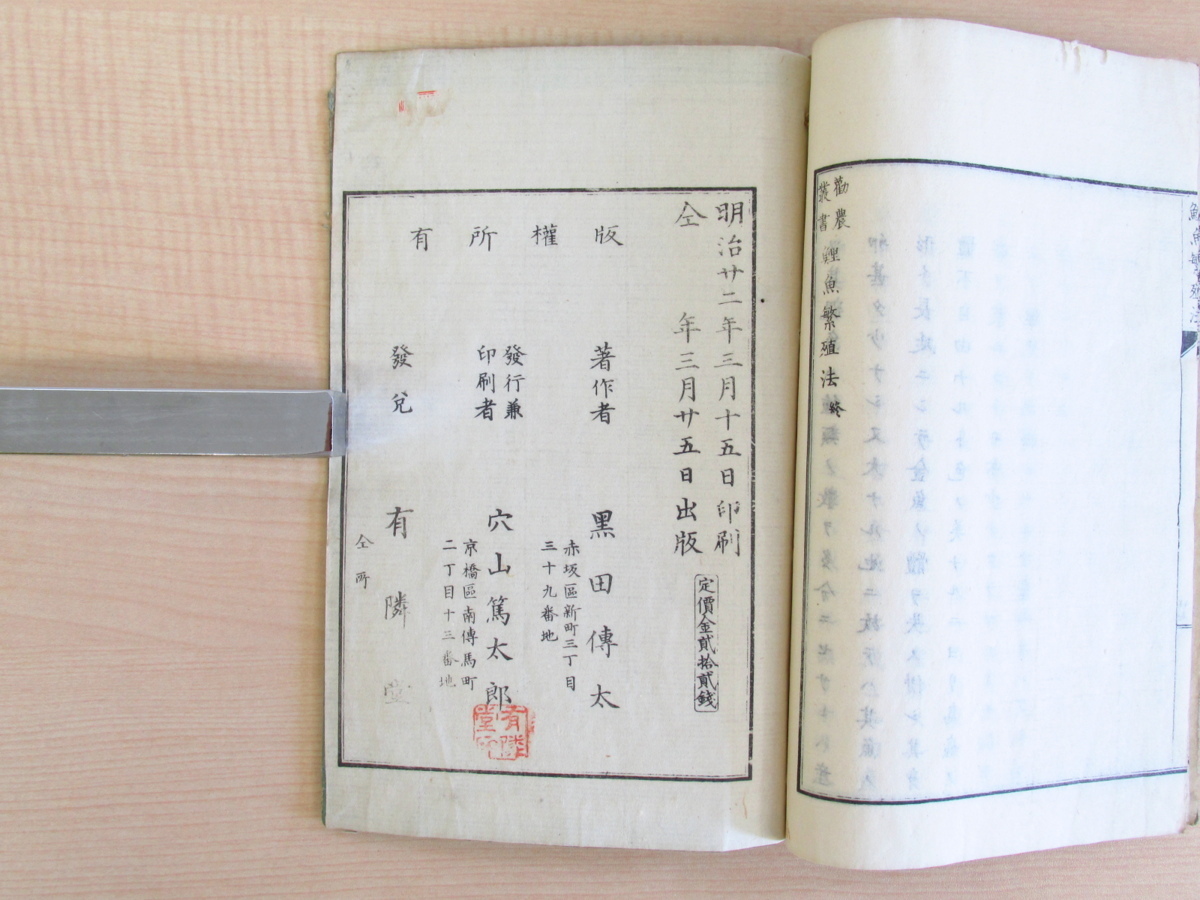 勸農
叢書
鯉魚繁殖法終
明治廿二年三月十五日印刷
仝 年三月廿五日出版
定價金貳拾貳錢
版權所有
著作者 黑田傳太
赤坂區新町三丁目
三十九番地
發行兼
印刷者 穴山篤太郎
京橋區南傳馬町
二丁目十三番地
發兌 有隣堂
仝所